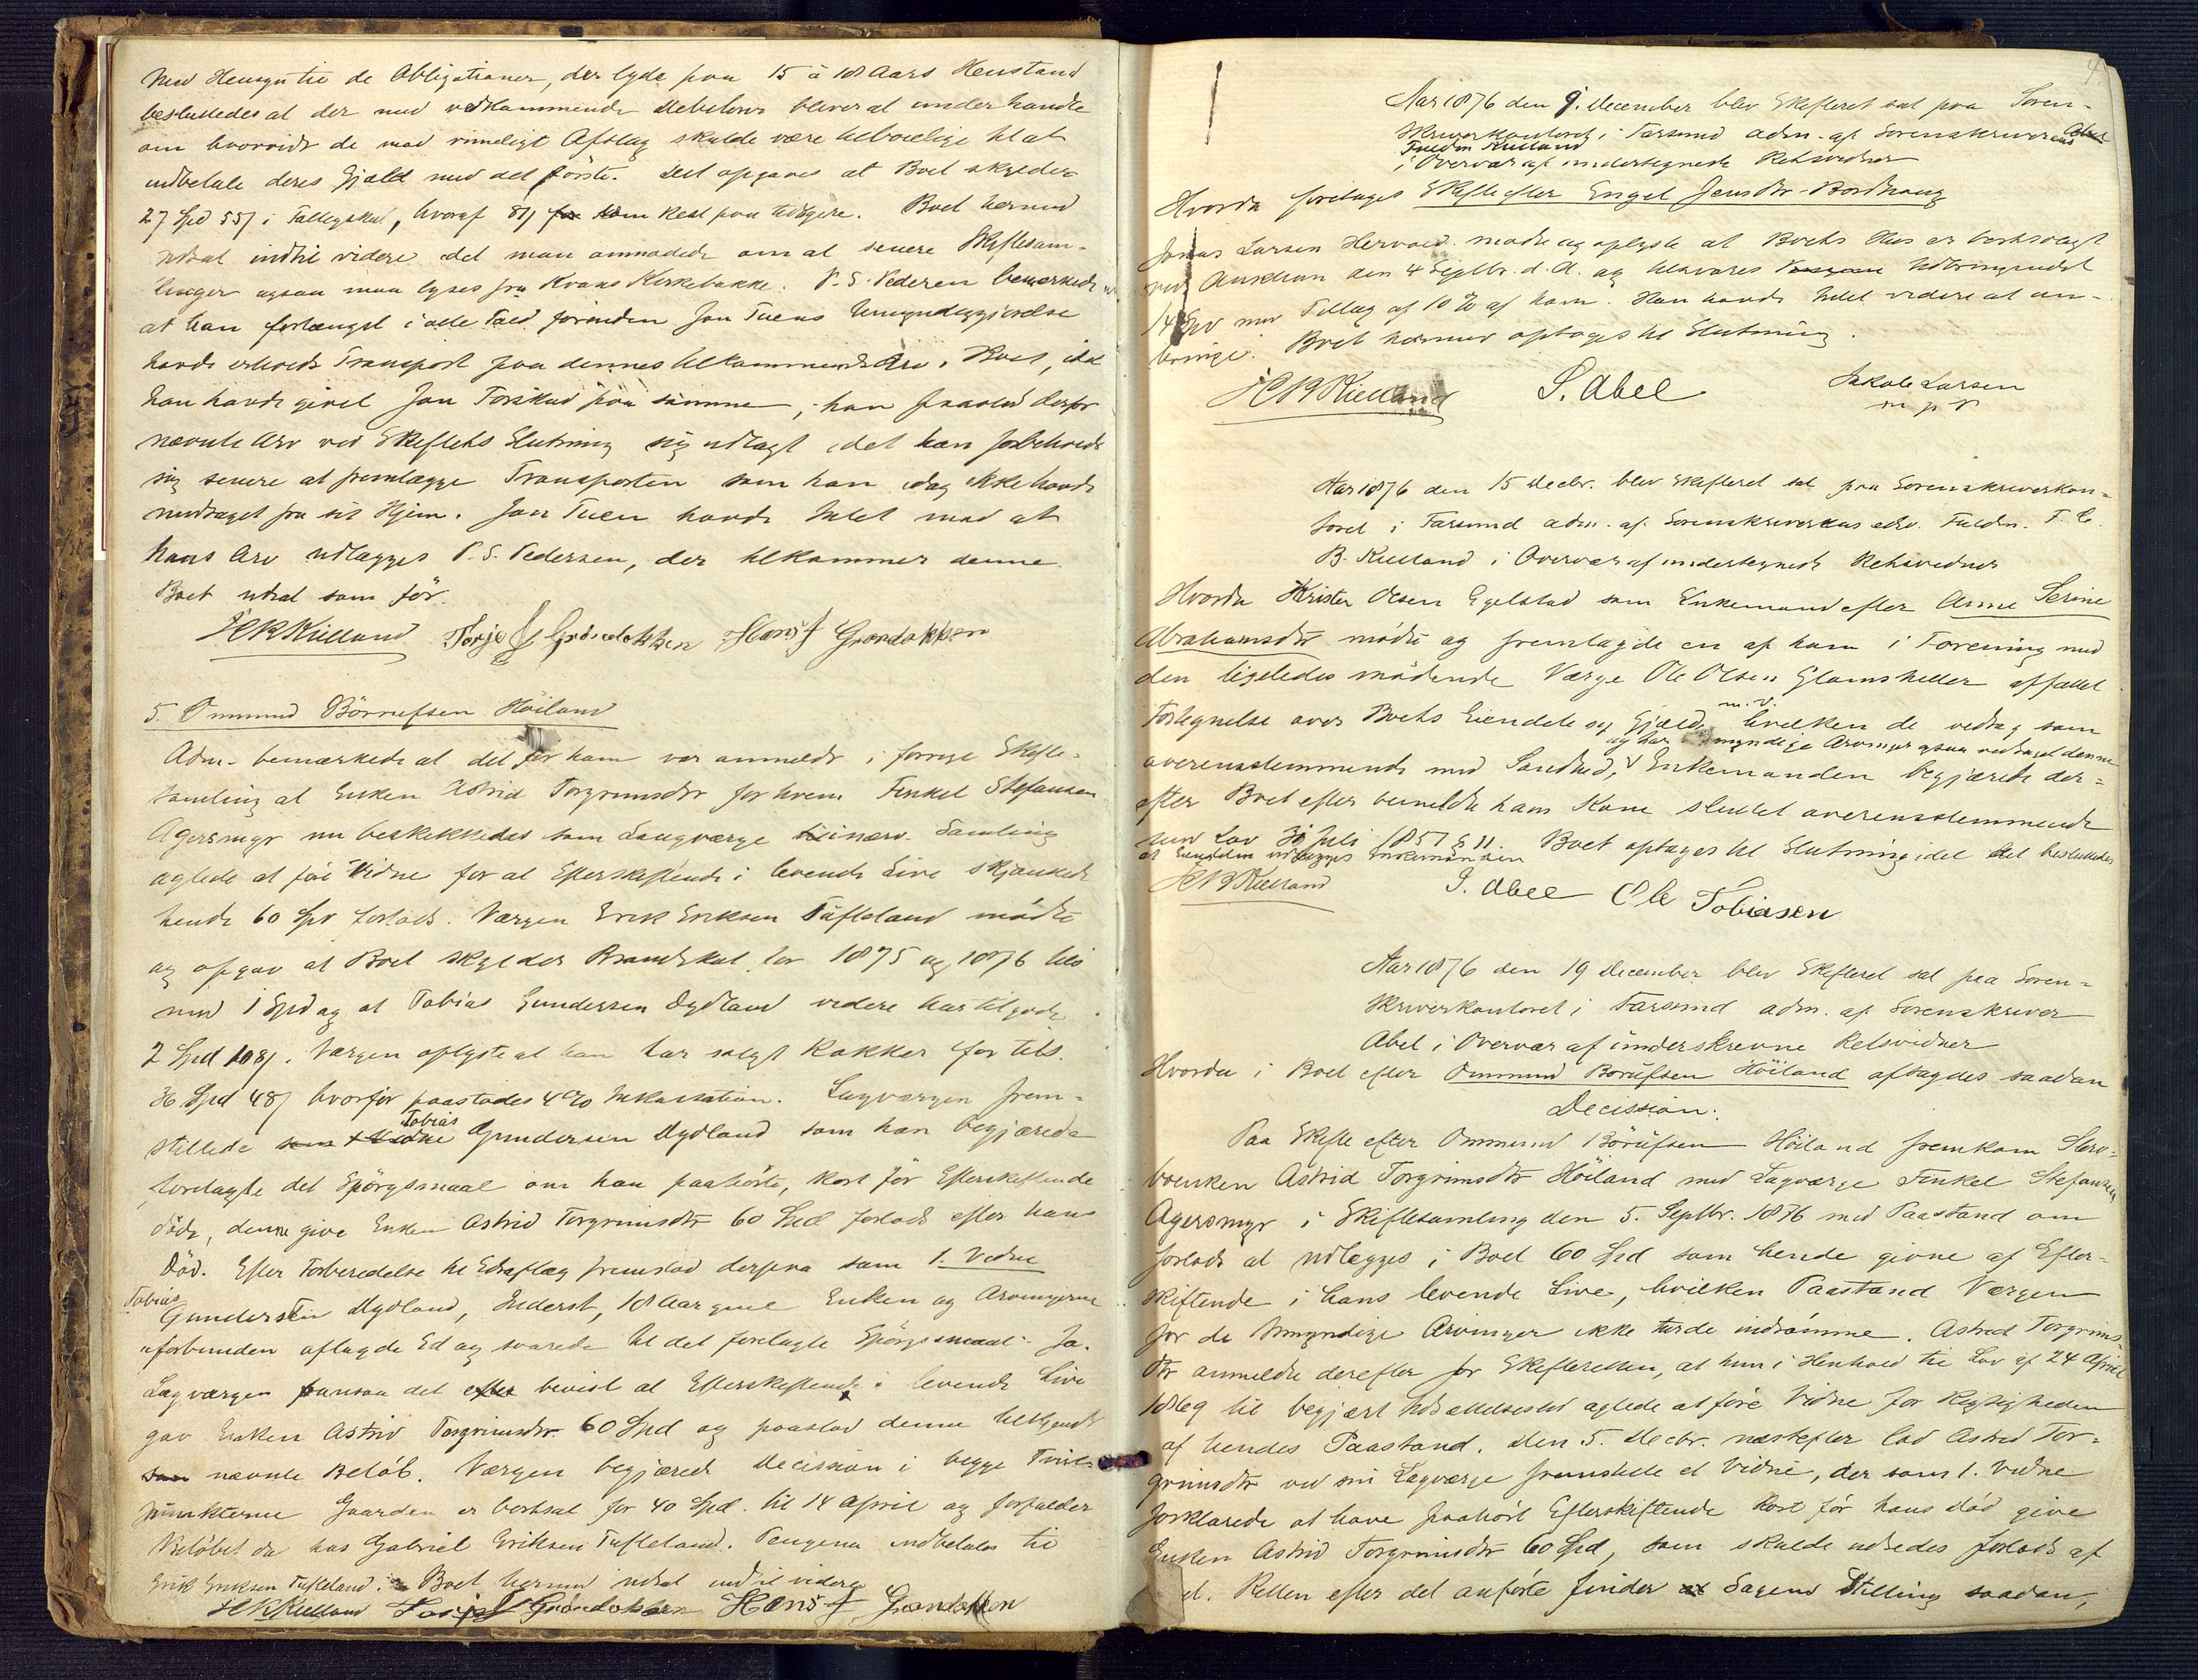 Med Hensyn til de Obligationer, der lyde paa 15 à 18 Aars Henstand
besluttedes at der med vedkommende Debitorer bliver at underhandle
om hvorvidt de mod rimeligt Afslag skulde være tilbøielige til at
indbetale deres Gjæld med det første. Det opgaves at Boet skylder
27 Spd 55 i Fattigskat, hvoraf 81 Rest paa tidligere. Boet hermed
udsat indtil videre idet man anmodede om at senere Skiftesam-
linger ogsaa maa lyses fra Kvaas Kirkebakke. P. S. Pedersen bemærkede
at han forlængst i alle Fald forinden Jon Tuens Umyndiggjørelse
havde erhvervet Transport paa dennes tilkommende Arv i Boet, idet
han havde givet Jon Forskud paa samme, han paastod derfor
nævnte Arv ved Skiftets Slutning sig udlagt idet han forbeholdt
sig senere at fremlægge Transporten som han idag ikke havde
medtaget fra sit Hjem. Jon Tuen havde Intet mod at
hans Arv udlægges P. S. Pedersen, der tilkommer denne.
Boet udsat som før.
Kielland Torje J Grøndokken Hans J Grøndokken
5. Ommund Børrufsen Höiland
Adm. bemærkede at det for ham var anmeldt i forrige Skifte-
samling at Enken Astrid Torgrimsdtr for hvem Tinkel Stefansen
Agersmyr nu beskikkedes som Laugværge i nærv. Samling
agtede at føre Vidne for at Efterskiftende i levende Live skjænkede
hende 60 Spd forlods. Værgen Erik Eriksen Tufteland mødte
og opgav at Boet skylder Brandskat for 1875 og 1876 tils
med 1 Spd og at Tobias Gundersen Dydland videre har tilgode
2 Spd 108. Værgen oplyste at han har solgt Rokker for tils.
36 Spd 48 hvorfor paastodes 4% Inkassation. Lagværgen frem-
stillede Tobias Gundersen Dydland som han begjærede
forelagte det Spørgsmaal om han paahørte, kort før Efterskiftende
døde, denne give Enken Astrid Torgrimsdtr 60 Spd forlods efter hans
Död. Efter Forberedelse til Edsaflæg fremstod derpaa som 1. Vidne
Tobias
Gundersen Dydland, Inderst, 18 Aar gml Enken og Arvingerne
uforbunden aflagde Ed og svarede til det forelagte Spørgsmaal: Ja.
Lagværgen fansaa det bevist at Efterskiftende i levende Live
gav Enken Astrid Torgrimsdtr 60 Spd og paastod denne tilkjendt
nævnte Beløb. Værgen begjærede Decission i begge Tviste-
punkterne Gaarden er bortsat for 40 Spd. til 14 April og forfalder
Beløbet da hos Gabriel Eriksen Tufteland. Pengene indbetales til
Erik Eriksen Tufteland. Boet hermed udsat indtil videre
Kielland Torje J Grøndokken Hans J Grøndokken
4
Aar 1876 den 9. December blev Skifteret sat paa Soren-
skriverkontoret i Farsund adm. af Sorenskriverens
Fuldm Kielland
i Overvær af undertegnede Retsvidner
Hvorda foretages Skifte efter Engel Jensdtr Bordhaug
Jonas Larsen Hervold mødte og oplyste at Boets Hus er bortsolgt
ved Auktion den 4 Septbr. d. A. og tilsvares Udbringendet
14 Spd med Tillæg af 10 % af ham. Han havde Intet videre at an-
bringe. Boet hermed optages til Slutning.
Kielland S. Abel Jakob Larsen
m p P
Aar 1876 den 15 Decbr. blev Skifteret sat paa Sorenskriverkon-
toret i Farsund adm. af Sorenskriverens edsv. Fuldm. T. C.
B. Kielland i Overvær af undertegnede Retsvidner
Hvorda Krister Olsen Egelstad som Enkemand efter Anne Serine
Abrahamsdtr mødte og fremlagde en af ham i Forening med
den ligeledes mødende Værge Ole Olsen Glomsheller affattet
m. V.
Fortegnelse over Boets Eiendele og Gjæld, hvilken de vedtog som
og har myndige Arvinger ogsaa vedtaget denne
overensstemmende med Sandhed, Enkemanden begjærede der-
efter Boet efter bemeldte hans Kone sluttet overensstemmende
med Lov 30 Juli 1851 § 11. Boet optages til Slutning idet det besluttedes
at Eiendelen udlægges Enkemanden
Kielland S. Abel Ole Tobiasen
Aar 1876 den 19 December blev Skifteret sat paa Soren-
skriverkontoret i Farsund adm. af Sorenskriver
Abel i Overvær af underskrevne Retsvidner
Hvorda i Boet efter Ommund Borufsen Höiland afsagdes saadan
Decission:
Paa Skifte efter Ommund Börufsen Höiland fremkom Sterv-
boenken Astrid Torgrimsdtr Höiland med Lagværge Tinkel Stefansen
Agersmyr i Skiftesamling den 5. Septbr. 1876 med Paastand om
forlods at udlægges i Boet 60 Spd som hende givne af Efter-
skiftende i hans levende Live, hvilken Paastand Værgen
for de Umyndige Arvinger ikke turde indrømme. Astrid Torgrims-
dtr anmeldte derefter for Skifteretten, at hun i Henhold til Lov af 24 April
1869 til begjært Udsættelsestid agtede at føre Vidne for Rigtigheden
af hendes Paastand. Den 5. Decbr. næstefter lod Astrid Tor-
grimsdtr ved sin Lagværge fremstille et Vidne, der som 1. Vidne
forklarede at have paahørt Efterskiftende kort før hans Död give
Enken Astrid Torgrimsdtr 60 Spd, som skulde udredes forlods af
Retten efter det anførte finder Sagens Stilling saadan,